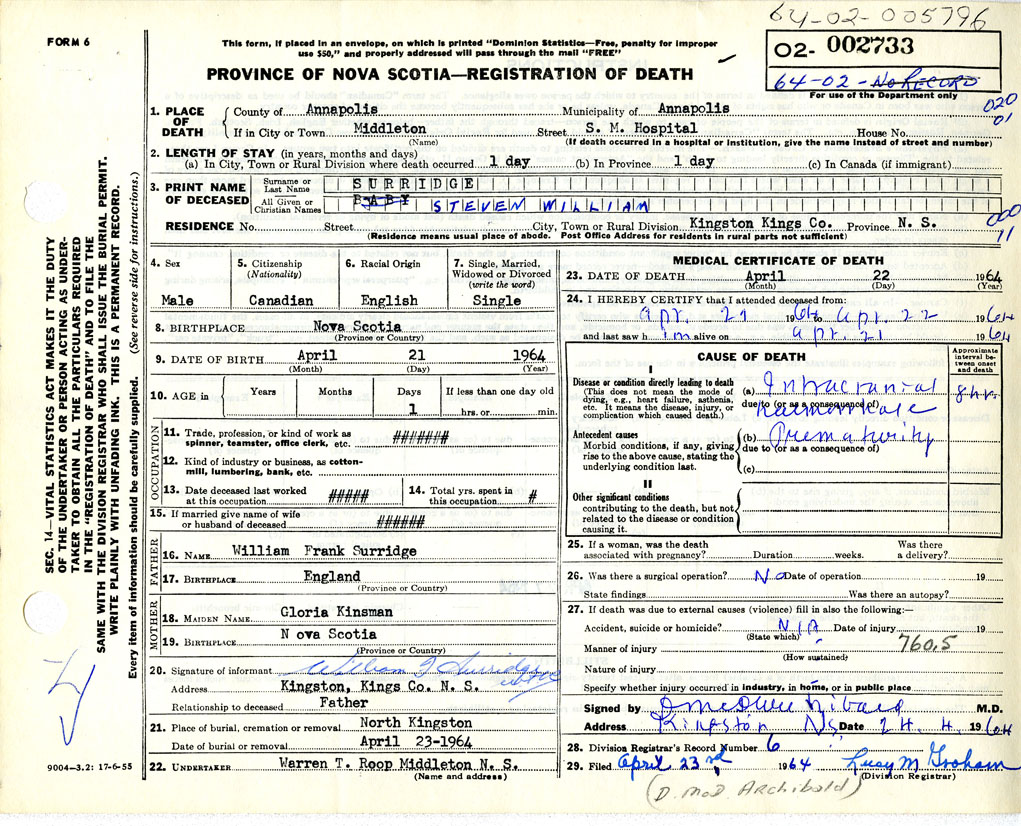 64-02-005796
FORM 6
This form, if placed in an envelope, on which is printed "Dominion Statistics—Free, penalty for improper
use $50," and properly addressed will pass through the mail "FREE"
PROVINCE OF NOVA SCOTIA—REGISTRATION OF DEATH
02- 002733
64-02-No RECORD
For use of the Department only
020
01
1. PLACE OF DEATH
County of Annapolis Municipality of Annapolis
If in City or Town Middleton Street S. M. Hospital House No.
(Name) (If death occurred in a hospital or institution, give the name instead of street and number)
2. LENGTH OF STAY (in years, months and days)
(a) In City, Town or Rural Division where death occurred 1 day (b) In Province 1 day (c) In Canada (if immigrant)
3. PRINT NAME OF DECEASED
Surname or Last Name SURRIDGE
All Given or Christian Names BABY STEVEN WILLIAM
000
11
RESIDENCE No. Street City, Town or Rural Division Kingston Kings Co. Province N. S.
(Residence means usual place of abode. Post Office Address for residents in rural parts not sufficient)
4. Sex
Male
5. Citizenship
(Nationality)
Canadian
6. Racial Origin
English
7. Single, Married, Widowed or Divorced
(write the word)
Single
8. BIRTHPLACE Nova Scotia
(Province or Country)
9. DATE OF BIRTH April 21 1964
(Month) (Day) (Year)
10. AGE in Years Months Days If less than one day old
1 hrs. or min.
OCCUPATION
11. Trade, profession, or kind of work as
spinner, teamster, office clerk, etc. #######
12. Kind of industry or business, as cotton-
mill, lumbering, bank, etc.
13. Date deceased last worked
at this occupation #####
14. Total yrs. spent in
this occupation #
15. If married give name of wife
or husband of deceased ######
FATHER
16. NAME William Frank Surridge
17. BIRTHPLACE England
(Province or Country)
MOTHER
18. MAIDEN NAME Gloria Kinsman
19. BIRTHPLACE N ova Scotia
(Province or Country)
20. Signature of informant William F Surridge
Address Kingston, Kings Co. N. S.
Relationship to deceased Father
21. Place of burial, cremation or removal North Kingston
Date of burial or removal April 23-1964
22. UNDERTAKER Warren T. Roop Middleton N. S.
(Name and address)
MEDICAL CERTIFICATE OF DEATH
23. DATE OF DEATH April 22 1964
(Month) (Day) (Year)
24. I HEREBY CERTIFY that I attended deceased from:
Apr. 21 1964 to Apr. 22 1964
and last saw h im alive on Apr. 21 1964
CAUSE OF DEATH
Approximate interval between onset and death
I
Disease or condition directly leading to death
(This does not mean the mode of
dying, e.g., heart failure, asthenia,
etc. It means the disease, injury, or
complication which caused death.)
(a) Intracranial 8 hr.
due to (or as a consequence of)
Haemorrhage
Antecedent causes
Morbid conditions, if any, giving
rise to the above cause, stating the
underlying condition last.
(b) Prematurity
due to (or as a consequence of)
(c)
II
Other significant conditions
contributing to the death, but not
related to the disease or condition
causing it.
25. If a woman, was the death Was there
associated with pregnancy? Duration weeks. a delivery?
26. Was there a surgical operation? No Date of operation 19
State findings Was there an autopsy?
27. If death was due to external causes (violence) fill in also the following:—
Accident, suicide or homicide? N/A Date of injury 19
(State which)
Manner of injury 760.5
(How sustained)
Nature of injury
Specify whether injury occurred in industry, in home, or in public place
Signed by M.D.
Address Kingston NS Date 24.4. 1964
28. Division Registrar's Record Number 6
29. Filed April 23rd 1964 Lucy M Graham
(Division Registrar)
(D. McD. Archibald)
SEC. 14—VITAL STATISTICS ACT MAKES IT THE DUTY
OF THE UNDERTAKER OR PERSON ACTING AS UNDER-
TAKER TO OBTAIN ALL THE PARTICULARS REQUIRED
IN THE "REGISTRATION OF DEATH" AND TO FILE THE
SAME WITH THE DIVISION REGISTRAR WHO SHALL ISSUE THE BURIAL PERMIT.
WRITE PLAINLY WITH UNFADING INK. THIS IS A PERMANENT RECORD.
Every item of information should be carefully supplied. (See reverse side for instructions.)
9004-3.2: 17-6-55